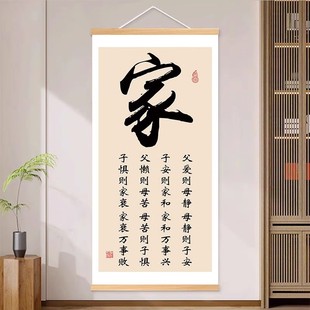 家
父爱则母静 母静则子安
子安则家和 家和万事兴
父懒则母苦 母苦则子惧
子惧则家衰 家衰万事败